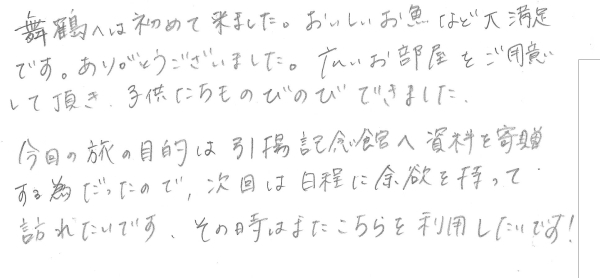 舞鶴へは初めて来ました。おいしいお魚など大満足
です。ありがとうございました。広いお部屋をご用意
して頂き、子供たちものびのびできました。
今回の旅の目的は引揚記念館へ資料を寄贈
する為だったので、次回は日程に余欲を持って
訪れたいです。その時はまたこちらを利用したいです!